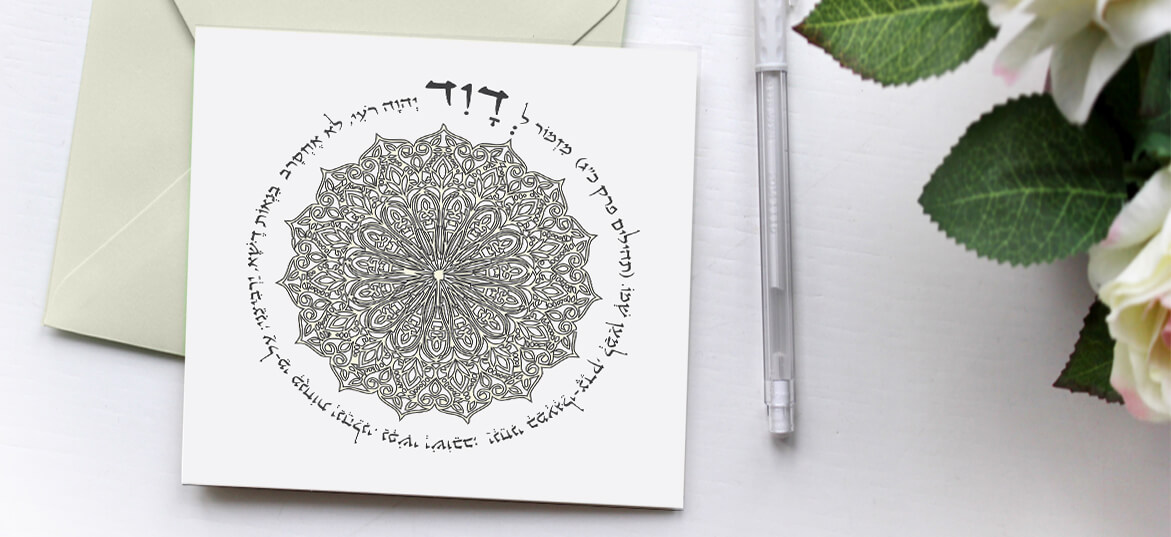 מִזְמוֹר לְדָוִד יְהוָה רֹעִי, לֹא אֶחְסָרב בִּנְאוֹת דֶּשֶׁא, יַרְבִּיצֵנִי; עַל-מֵי מְנֻחוֹת יְנַהֲלֵנִי. נַפְשִׁי יְשׁוֹבֵב; יַנְחֵנִי בְמַעְגְּלֵי-צֶדֶק, לְמַעַן שְׁמוֹ. (תהילים פרק כ"ג)